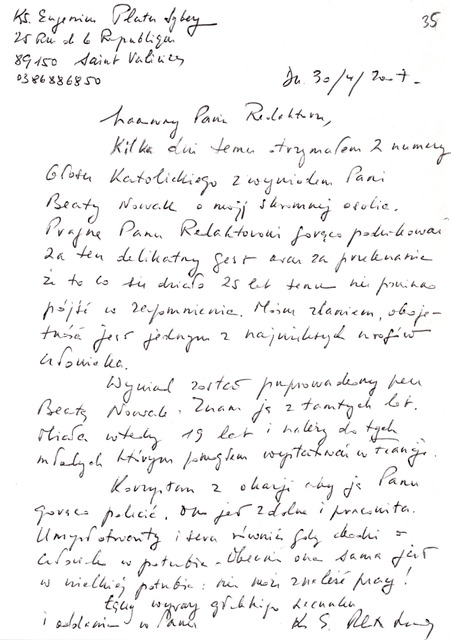 Ks. Eugeniusz Plater Syberg
35
25 Rue de la République
89150 Saint Valérien
0386886850
Dn. 30/4/2007.
Szanowny Panie Redaktorze,
Kilka dni temu otrzymałem 2 numery
Głosu Katolickiego z wywiadem Pani
Beaty Nowak o mojej skromnej osobie.
Pragnę Panu Redaktorowi gorąco podziękować
za ten delikatny gest oraz za przekonanie
że to co się działo 25 lat temu nie powinno
pójść w zapomnienie. Moim zdaniem, oboję-
tność jest jednym z największych wrogów
człowieka.
Wywiad został przeprowadzony przez
Beatę Nowak. Znam ją z tamtych lat.
Miała wtedy 19 lat i należy do tych
młodych którym pomogłem wystartować w Francji.
Korzystam z okazji aby ją Panu
gorąco polecić. Ona jest zdolna i pracowita.
Umysł otwarty i serce również gdy chodzi o
człowieka w potrzebie. Obecnie ona sama jest
w wielkiej potrzebie: nie może znaleźć pracy!
Łączę wyrazy głębokiego szacunku
i oddania w Panu
Ks. E. Plater